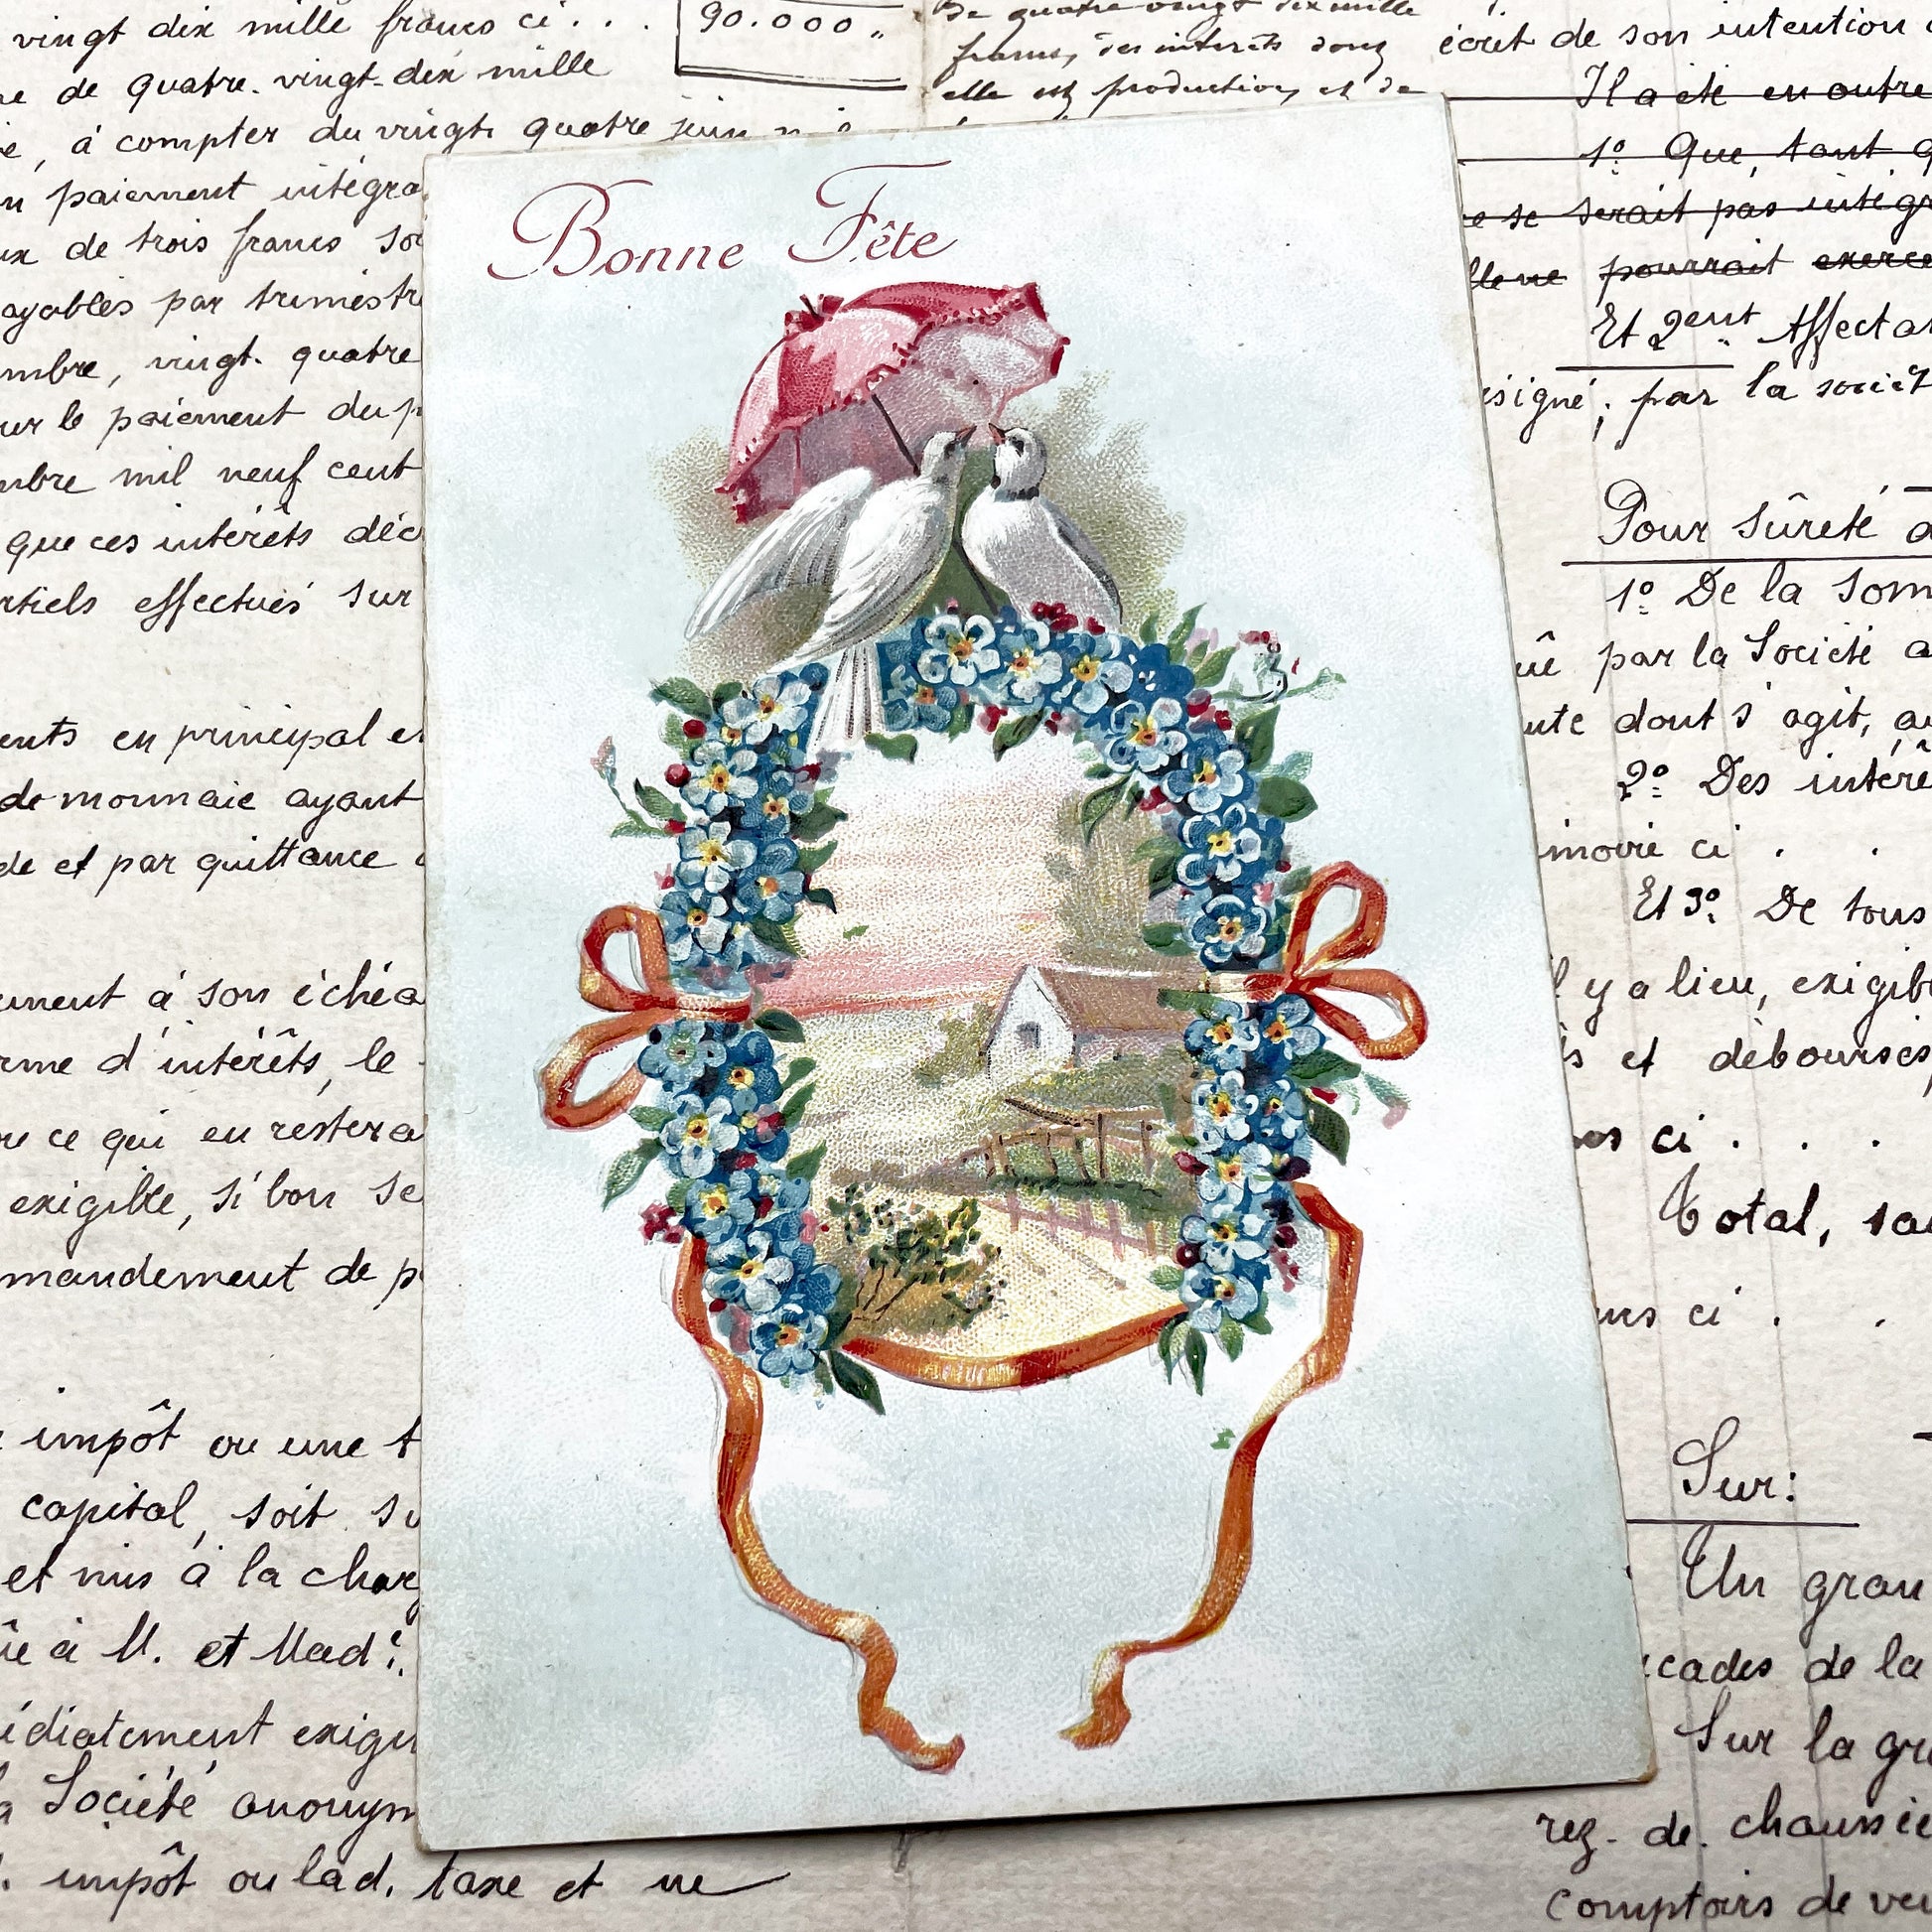 vingt dix mille francs ci . . .
90.000 "
de quatre-vingt-dix mille
à compter du vingt quatre juin
paiement intégra
de trois francs
ayables par trimestr
mbre, vingt-quatre
ur le paiement du p
mbre mil neuf cent
que ces intérêts déc
rtiels effectués sur
ents en principal e
de monnaie ayant
de et par quittance
ment à son échéa
rme d'intérêts, le
ce qui en restera
exigible, si bon se
mandement de p
impôt ou une t
capital, soit su
et mis à la char
à M. et Mad
édiatement exigi
Société anonym
impôt ou lad. taxe et ne
De quatre vingt dix mille
francs, des intérêts dont
elle est production, et de
Bonne Fête
écrit de son intention
Il a été en outre
1º Que, tant q
e se serait pas intégr
lle ne pourrait exerce
Et 2ent Affecta
signé, par la sociét
Pour sûreté d
1º De la som
par la Société a
ute dont s'agit, au
2º Des intérê
moire ci . .
Et 3º De tous
il y a lieu, exigib
s et débourses
ci . . .
Total, sa
urs ci . .
Sur:
Un gran
cades de la
Sur la gr
rez-de-chaussé
comptoirs de ve